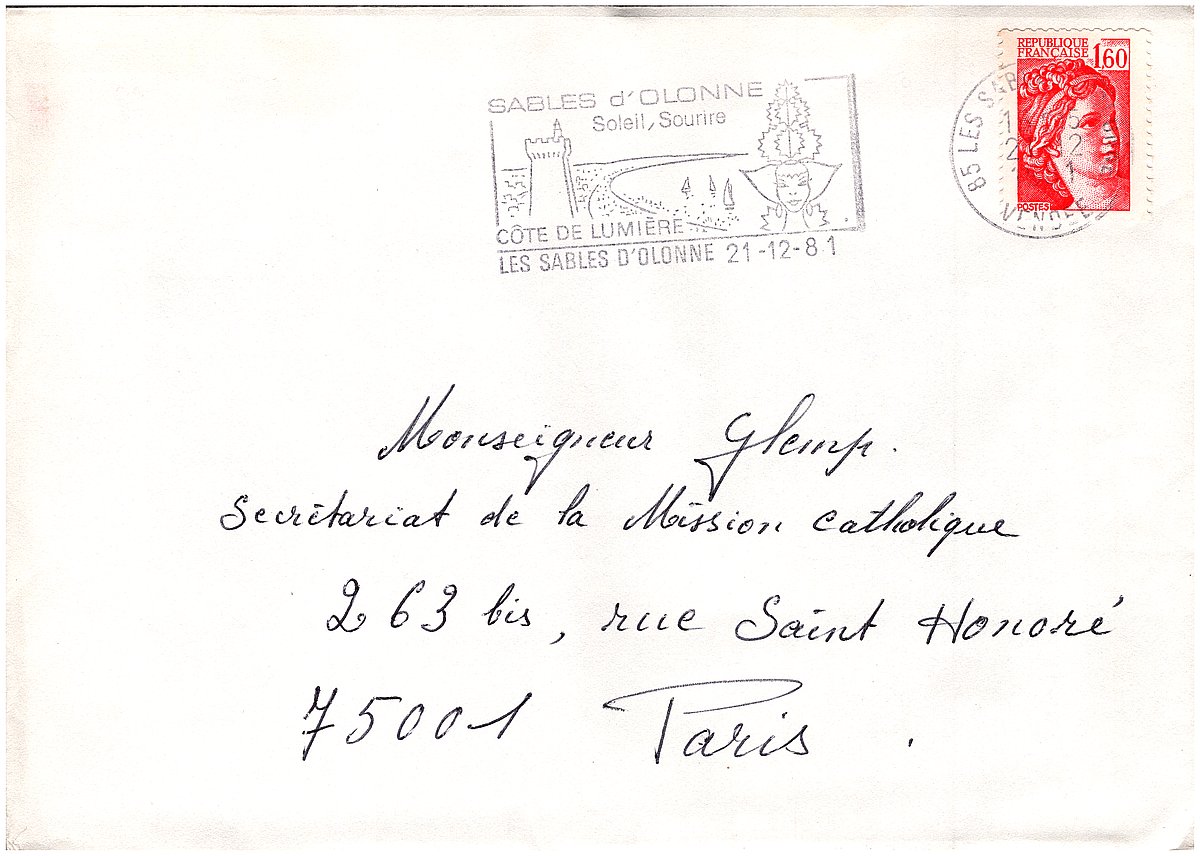 SABLES d'OLONNE
Soleil, Sourire
CÔTE DE LUMIÈRE
LES SABLES D'OLONNE 21-12-81
REPUBLIQUE
FRANÇAISE
1,60
POSTES
85 LES SAB
VENDEE
Monseigneur Glemp.
Secrétariat de la Mission catholique
263 bis, rue Saint Honoré
75001 Paris.